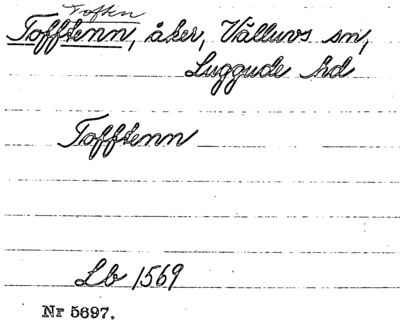 Toften
Tofftenn, åker, Välluvs sn,
Luggude hd
Tofftenn
Lb 1569
Nr 5697.